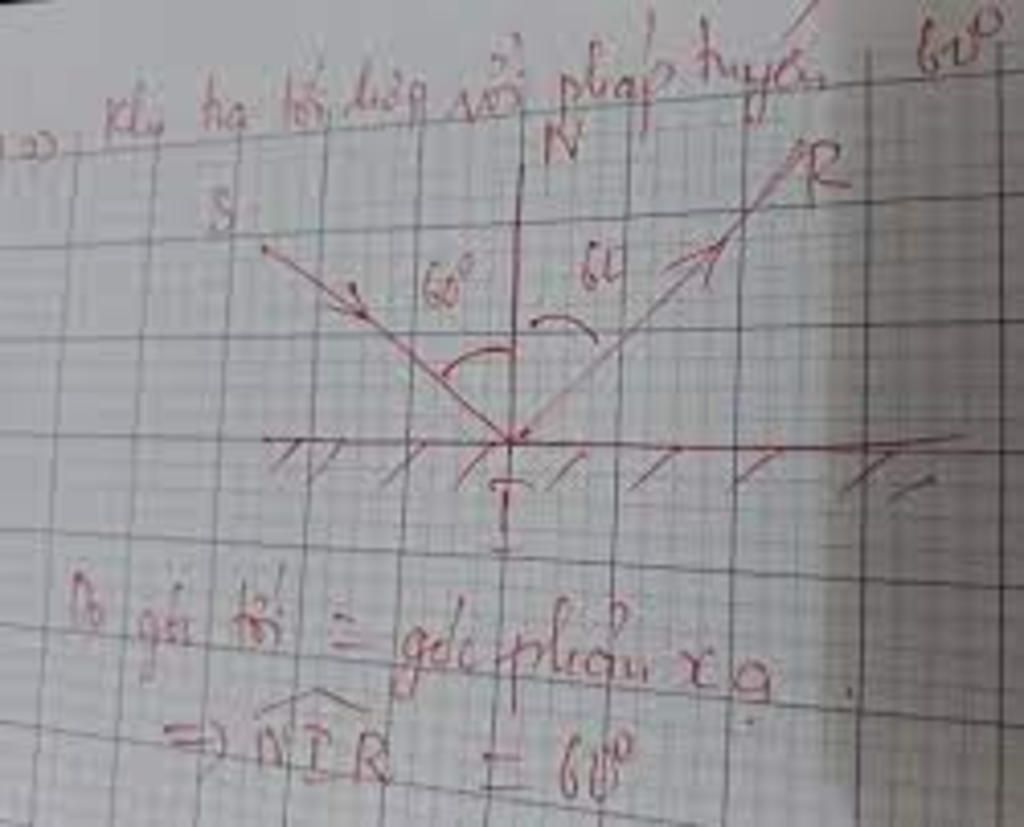 Khi tia tới hợp với pháp tuyến 60°
N
R
S
60°
60
I
Do góc tới = góc phản xạ.
=> NIR = 60°